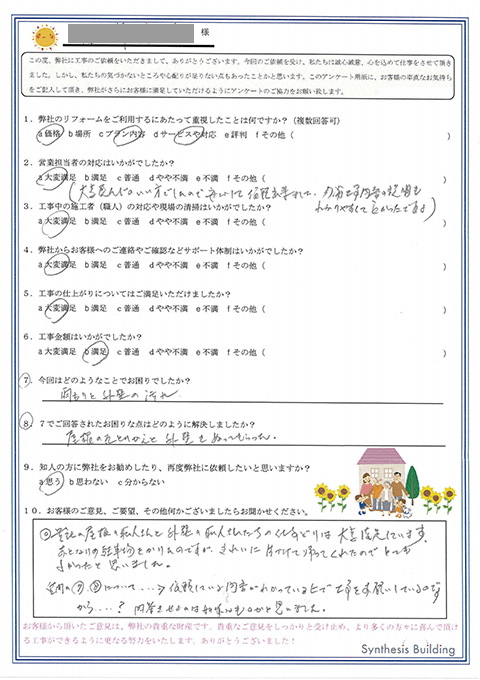 様
この度、弊社に工事のご依頼をいただきまして、ありがとうございます。今回のご依頼を受け、私たちは誠心誠意、心を込めて仕事をさせて頂き
ました。しかし、私たちの気づかないところや心配りが足りない点もあったことかと思います。このアンケート用紙に、お客様の率直なお気持ち
をご記入して頂き、弊社がさらにお客様に満足していただけるようにアンケートのご協力をお願い致します。
1．弊社のリフォームをご利用するにあたって重視したことは何ですか？（複数回答可）
a 価格 b 場所 c プラン内容 d サービスや対応 e 評判 f その他（ ）
2．営業担当者の対応はいかがでしたか？
a 大変満足 b 満足 c 普通 d やや不満 e 不満 f その他（
3．工事中の施工者（職人）の対応や現場の清掃はいかがでしたか？
a 大変満足 b 満足 c 普通 d やや不満 e 不満 f その他（ ）
4．弊社からお客様へのご連絡やご確認などサポート体制はいかがでしたか？
a 大変満足 b 満足 c 普通 d やや不満 e 不満 f その他（ ）
5．工事の仕上がりについてはご満足いただけましたか？
a 大変満足 b 満足 c 普通 d やや不満 e 不満 f その他（ ）
6．工事金額はいかがでしたか？
a 大変満足 b 満足 c 普通 d やや不満 e 不満 f その他（ ）
7．今回はどのようなことでお困りでしたか？
雨もりと外壁の汚れ
8．7でご回答されたお困りな点はどのように解決しましたか？
屋根のとりかえと外壁をぬってもらった。
9．知人の方に弊社をお勧めしたり、再度弊社に依頼したいと思いますか？
a 思う b 思わない c 分からない
10．お客様のご意見、ご要望、その他何かございましたらお聞かせください。
の屋根の職人さんと外壁の職人さんたちの仕事ぶりは大変満足しています。
おとなりの駐車場をかりたのですが、きれいに片付けて帰ってくれたのでとても
よかったと思いました。
質問の⑦、⑧について…→依頼している内容がわかっている上で工事をお願いしているのです
から…？
お客様から頂いたご意見は、弊社の貴重な財産です。貴重なご意見をしっかりと受け止め、より多くの方々に喜んで頂け
る工事ができるように更なる努力をいたします。ありがとうございました！
Synthesis Building